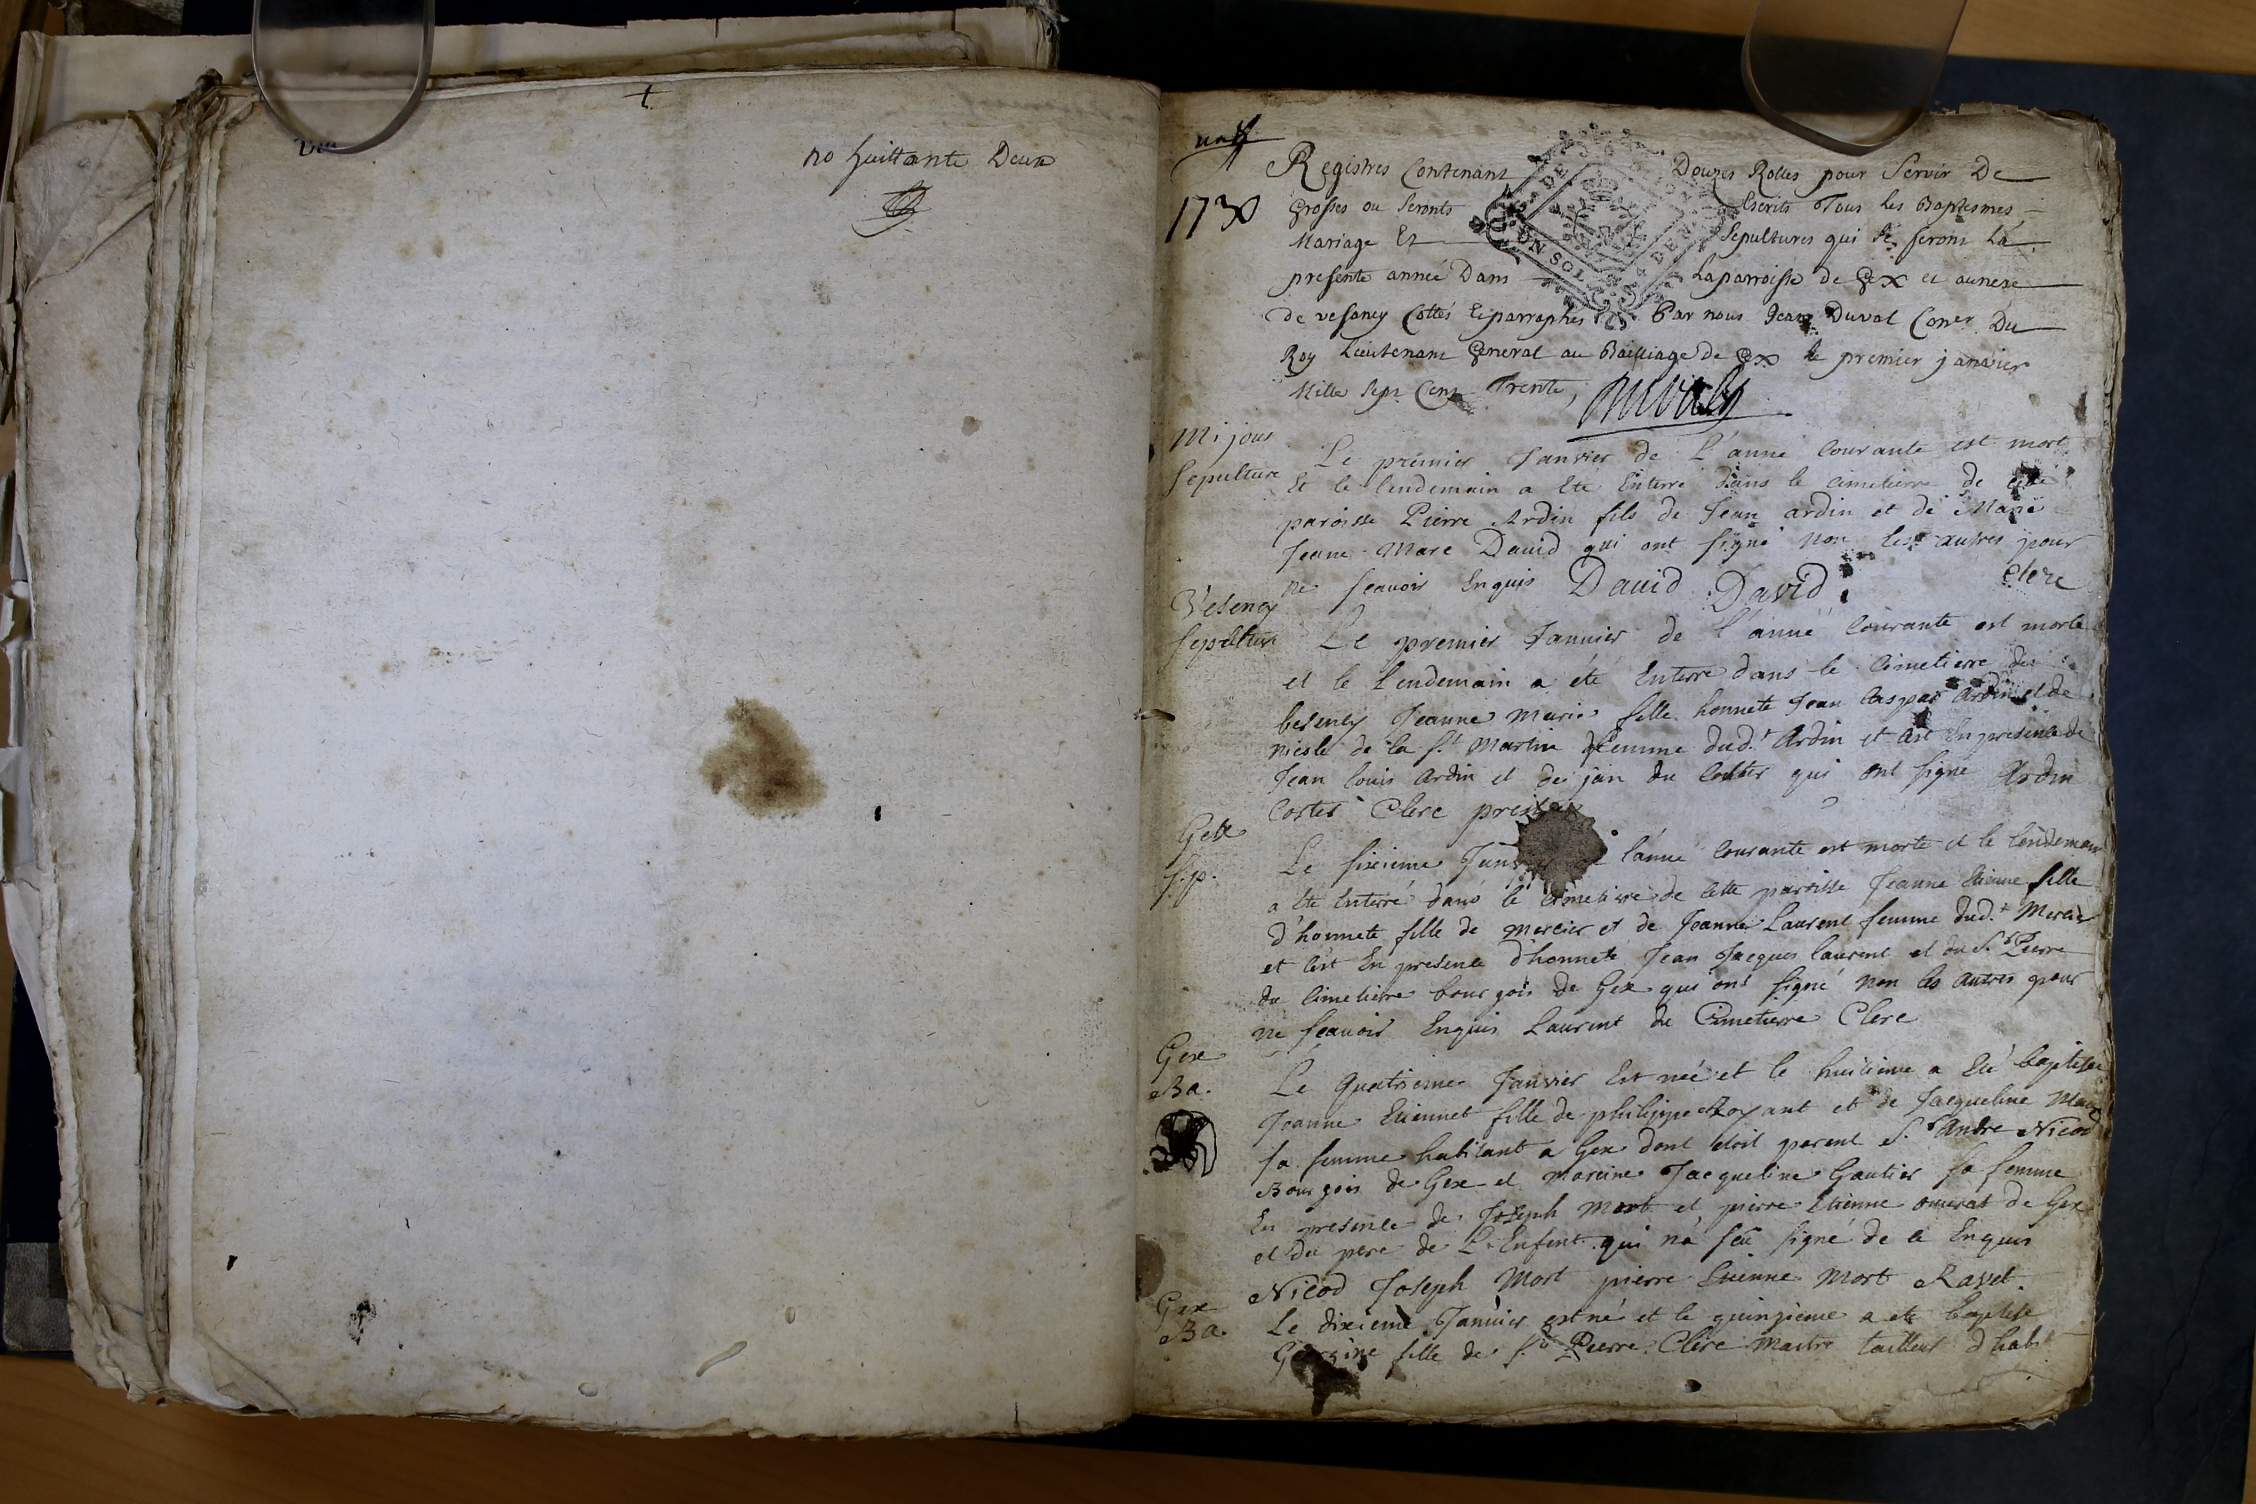 no huittante Deux
1730
Registres Contenant Douzes Rolles pour Servir De
Grosses ou Seronts Escrits Tous les Baptesmes
Mariage Et Sepultures qui se feront La
presente année Dans La parroisse de Gex et annexe
de vesancy Cottés et parraphés Par nous Jean Duval Coner Du
Roy Lieutenant General au Bailliage de Gex le premier janvier
Mille Sept Cent Trente, Duval
GENERALITE DE DIJON
UN SOL 4 DEN
Mijoux
Sepulture
Le premier Janvier de L'anné Courante est mort
Et le lendemain a Ete Enterré dans le cimetierre de cette
paroisse Pierre Ardin fils de Jean ardin et de Marie
Jeanne Marc David qui ont signé non les autres pour
ne scavoir Enquis David David Clerc
Vesency
sepulture
Le premier Januier de l'anné Courante est morte
et le Lendemain a été Enterré dans le Cimetierre de
besency Jeanne Marie fille honnete Jean Caspar Ardin et de
nicole de la St Martin femme dud.t Ardin et cest En presence de
Jean louis Ardin et de jan du Coster qui ont signé Ardin
Coster Clerc
Gex
s.p.
Le sixieme Janvier de l'anné Courante est morte et le lendemain
a Ete Enterré dans le cimetierre de cette paroisse Jeanne Etienne fille
d'honnete fille de mercier et de Jeanne Laurent femme dud.t Mercier
et cest En presence d'honneté Jean Jacques laurent et du S.r Pierre
du Cimetierre bourgois de Gex qui ont signé non les autres pour
ne scavoir Enquis Laurent du Cimetierre Clerc
Gex
Ba.
Le quatrieme Janvier Est née et le huitieme a Eté baptisée
Jeanne Etiennet fille de philippe Royant et de Jacqueline
sa femme habitant a Gex dont etoit parent S.r Andre Nicod
Bourgois de Gex et mareine Jacqueline Gautier sa femme
En presence de Joseph Mort et pierre Etienne de Gex
et du pere de L'Enfent qui n'a seu signé de ce Enquis
Nicod Joseph Mort pierre Etienne Mort Ravet.
Gex
Ba.
Le dixieme Januier est né et le quinzieme a ete baptisée
fille de S.r Pierre Clerc Maitre tailleur d'habit